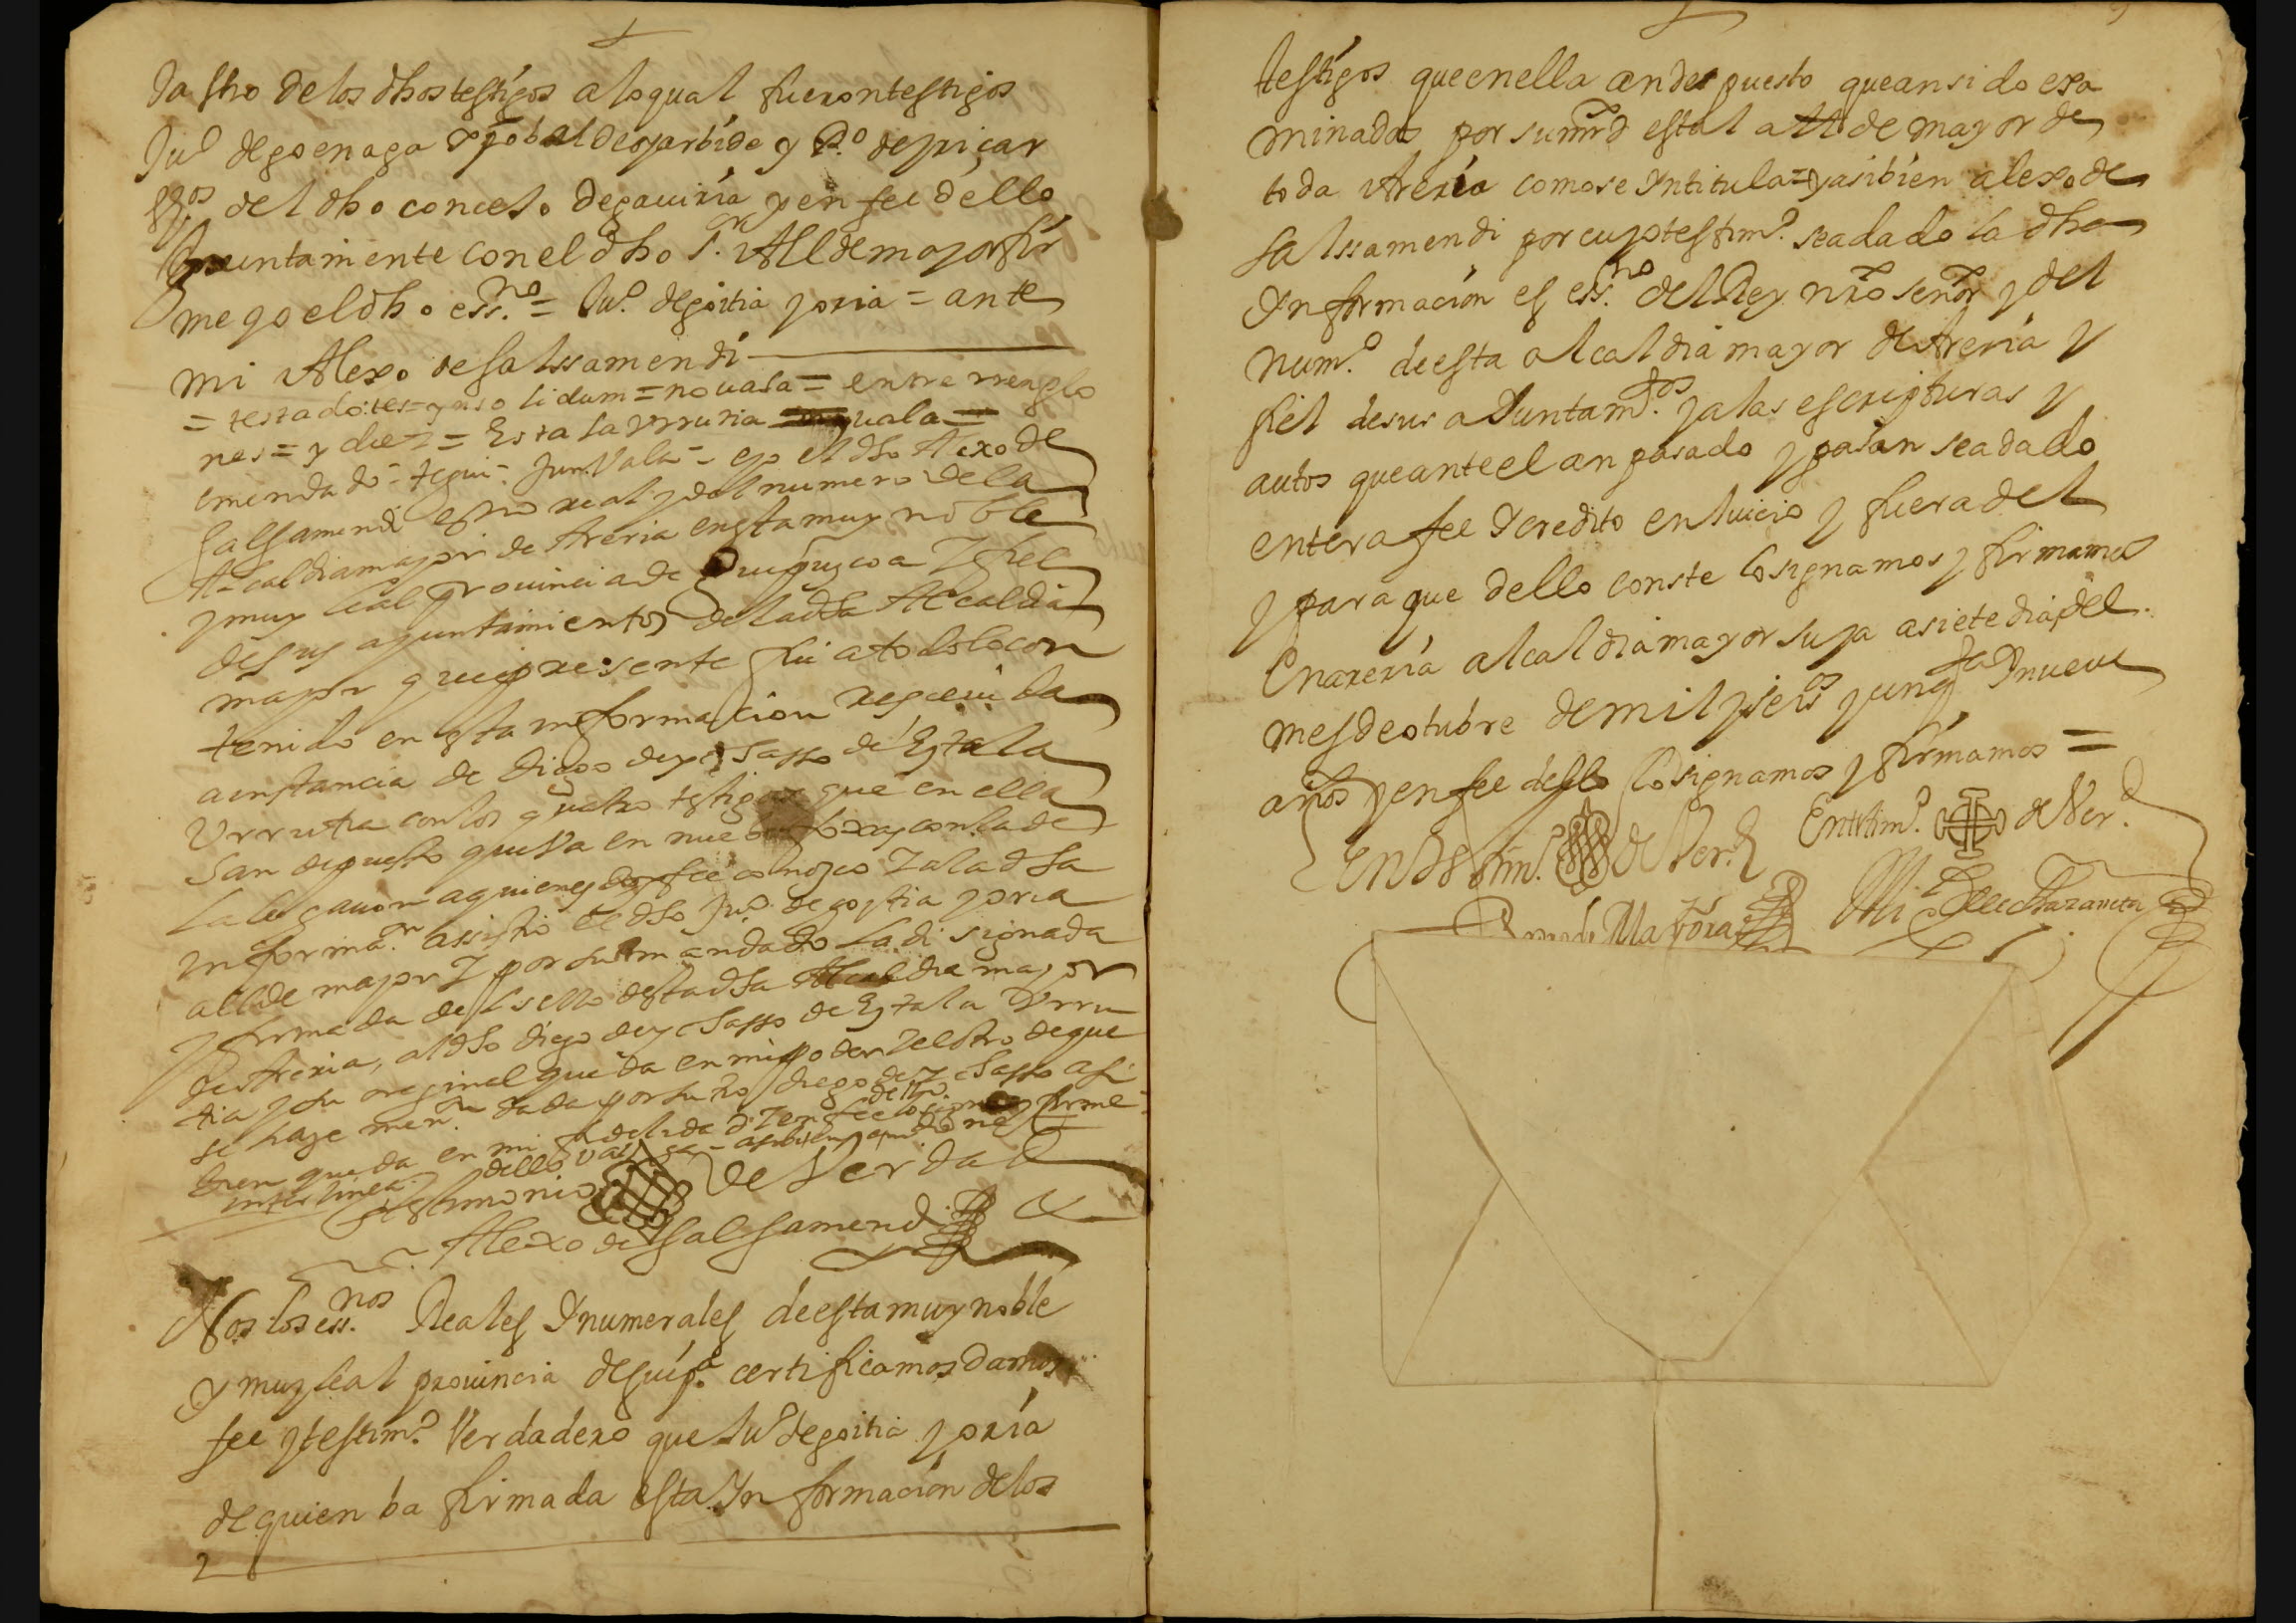 da fho de los dhos testigos a lo qual fueron testigos
Juº de goenaga xpobal de ygarbide y Pº de yriçar
vzºs del dho concejo de gaviria y en fee dello
Juntamente con el dho Sr. Allde mayor fir
me yo el dho essno = Juº de goitia y oria = ante
mi Alexo de salssamendi
= testado: tes = ynsolidum = no uala = entre rrenglo
nes = y diez = Esta la Vrrutia = uala =
emendado = Vala = eyo el dho Alexo de
salsamendi esno real y del numero de la
Alcaldia mayor de Areria en esta muy noble
y muy leal prouincia de Guipuzcoa y fiel
de sus ayuntamientos de la dha Alcaldia
mayor que presente fui a todo lo con
tenido en esta informacion regeuida
a instancia de diego de ysasso de Eztala
Vrrutia con los quatro testigos que en ella
han depuesto que va en nueue foxas con la de
la legauon a quienes doy fee conozco y a la dha
informaon assistio el dho Juº de goytia y oria
allde mayor y por su mandado la di signada
y firmada del sello desta dha Alcaldia mayor
de Areria, al dho diego de ysasso de Eztala Vrru
tia y su oreginal queda en mi poder y el otro de que
se haze menon dada por dho diego de ysasso asi
bien queda en mi fidelidad y en fee dello lo signe y firme
interlinea dello vala
En testimonio de Verdad
Alexo de Salsamendi
Nos los essnos Reales y numerales de esta muy noble
y muy leal prouincia de guipª certificamos damos
fee y testimº Verdadero que Juº de goitia y oria
de quien ba firmada esta ynformacion de los
testigos que en ella an depuesto que an sido exa
minados por su mrd esta l allde mayor de
toda Areria como se yntitula = y asi bien alexo de
salssamendi por cuyo testimº se a dado la dha
ynformacion es essno del Rey nro señor y del
numº de esta alcaldia mayor de Areria y
fiel de sus aiuntamtos y a las escripturas y
autos que ante el an pasado y pasan se a dado
entera fee y credito en juicio y fuera del
y para que dello conste lo signamos y firmamos
En areria alcaldia mayor suya a siete dias del
mes de otubre de mil y seisos y cinqta y nueue
años y en fee dello lo signamos y firmamos =
En testimº de Ver.d
En testimº de Ver.d